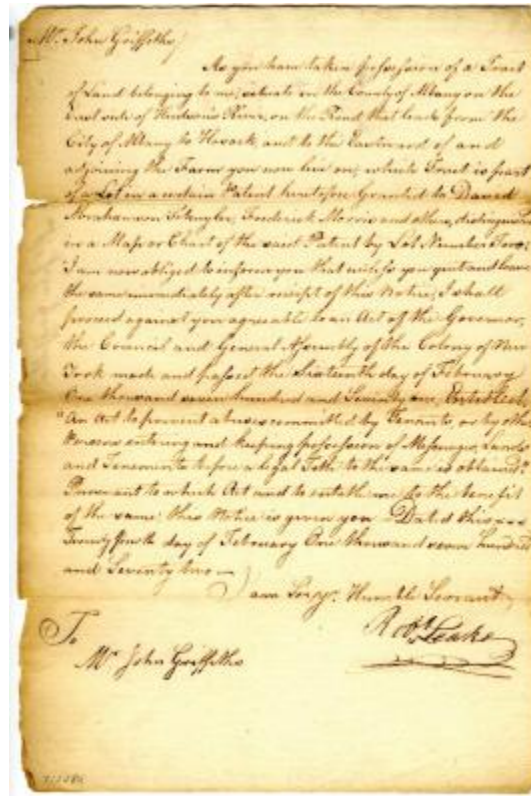 Mr. John Griffiths
As you have taken possession of a Tract
of Land belonging to me, situate in the County of Albany on the
East side of Hudson's River, on the Road that leads from the
City of Albany to Hosack, and to the Eastward of and
adjoining the Farm you now live on, which Tract is part
of a Lot in a certain Patent heretofore Granted to David
Abrahamson Schuyler, Frederick Morris and others, distinguished
in a Map or Chart of the said Patent by Lot Number Two;
I am now obliged to inform you that unless you quit and leave
the same immediately after receipt of this Notice, I shall
proceed against you agreeable to an Act of the Governor,
the Council and General Assembly of the Colony of New
York made and passed the Sixteenth day of February
One thousand seven hundred and Seventy one, Entitled,
"An Act to prevent abuses committed by Tenants, or by other
Persons entering and keeping possession of Messuages, Lands
and Tenements before a legal Title to the same is obtained."
Pursuant to which Act and to entitle me to the benefit
of the same, this Notice is given you Dated this
Twenty fourth day of February One thousand seven hundred
and Seventy two
I am Sir yr. Humble Servant
Robt. Leake
To
Mr. John Griffiths